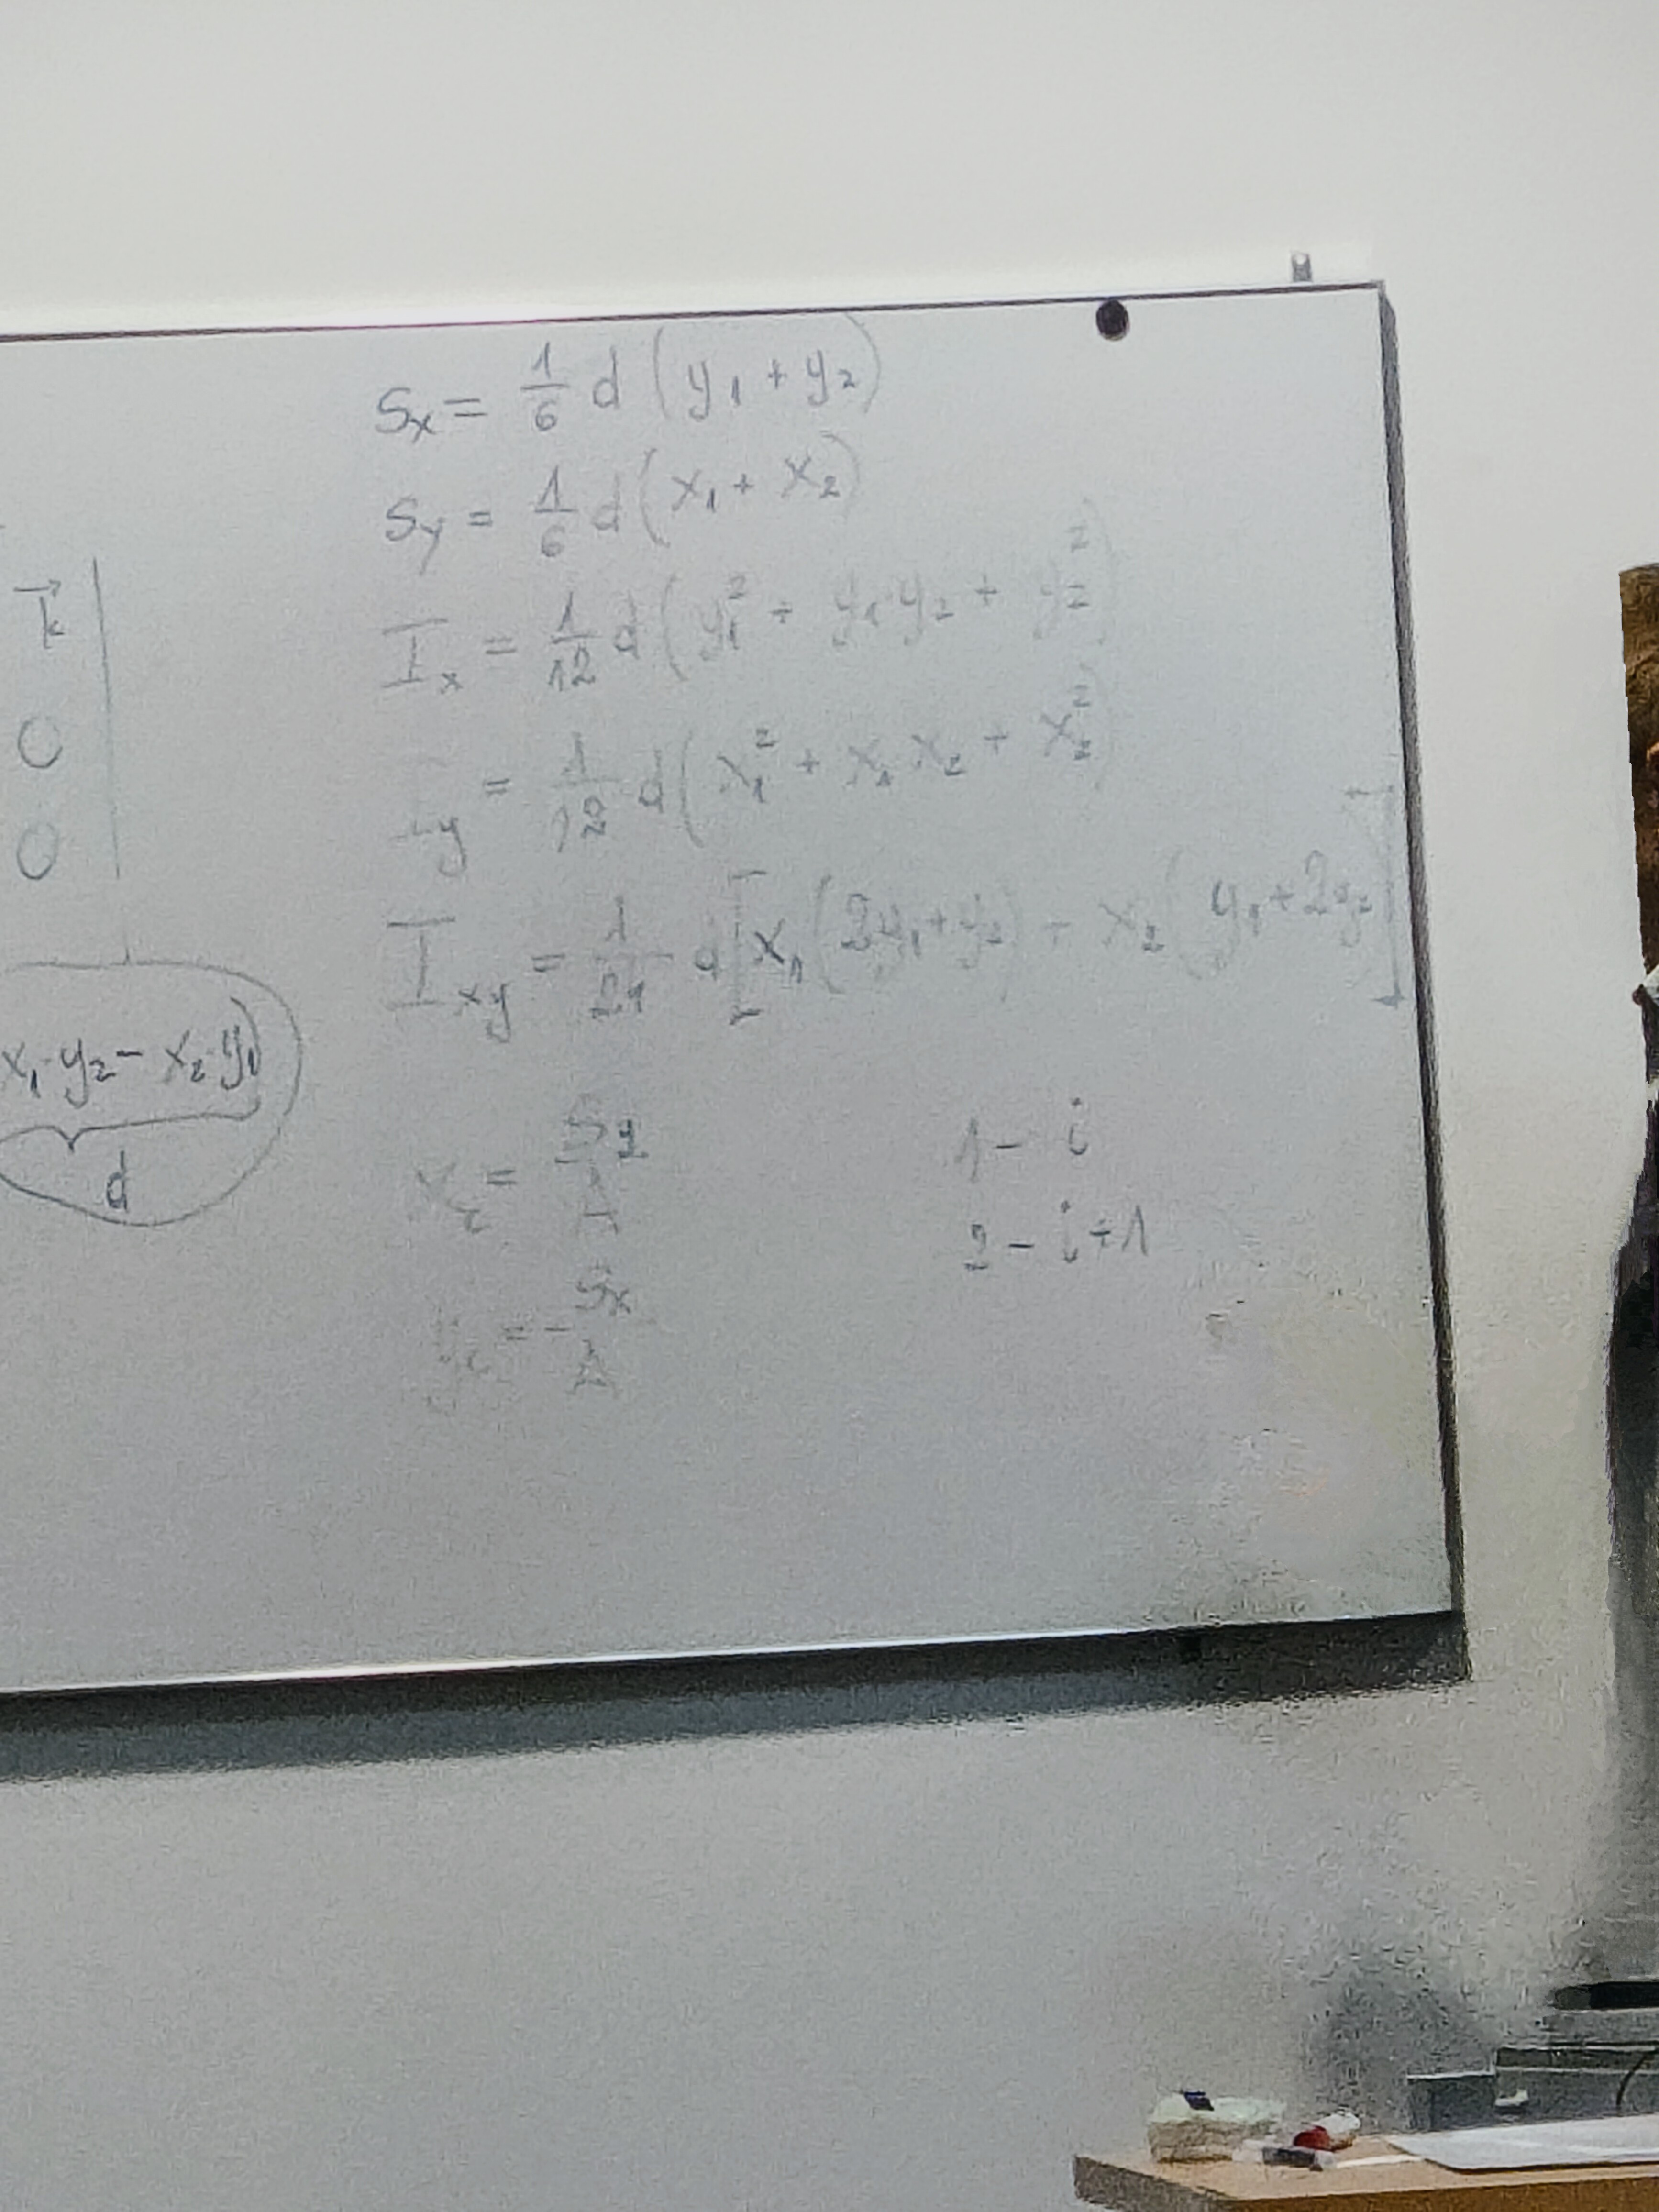 k⃗
0
0
x₁·y₂ - x₂·y₁)
d
Sx = 1/6 d (y₁ + y₂)
Sy = 1/6 d (x₁ + x₂)
Ix = 1/12 d (y₁² + y₁·y₂ + y₂²)
Iy = 1/12 d (x₁² + x₁ x₂ + x₂²)
Ixy = 1/24 d [x₁ (2y₁+y₂) + x₂ (y₁+2y₂)]
xc = Sy/A
yc = Sx/A
1 - i
2 - i+1